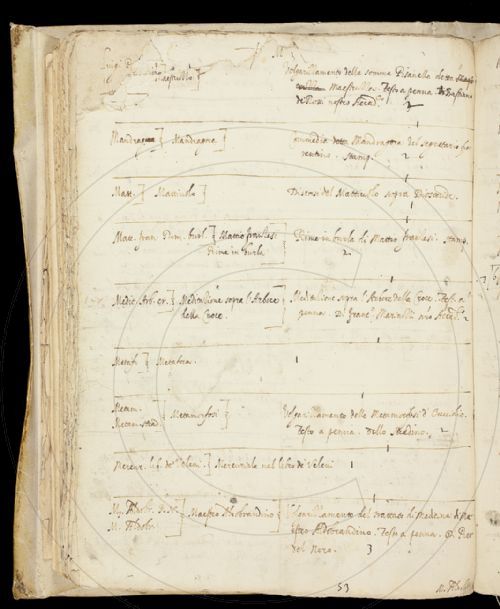 M.
Maestruzzo]
Volgarizzamento della somma Pisanella detta
Maestruzzo. Testo a penna. Di Bastiano
de Rossi nostro Accad.
2
Mandragora} Mandragora}
Commedia detta Mandragora del segretario fio
rentino. Stamp. 2
Matt.} Mattiuolo}
Discorsi del Mattiuolo sopra Dioscoride.
Matt. fran. Rim. burl.} Mattio franzesi
Rime in burla
Rime in burla di Matteo franzesi. Stamp.
2.
Medit. Arb. cr.} Meditazione sopra l'Arbore
della Croce.
Meditazione sopra l'Arbore della Croce. Testo a
penna. Di Franc.º Marinelli Accad. 2
Metaf.} Metafora.
1
Metam.} Metamorfosi}
Volgarizzamento delle Metamorfosi d'Ovvidio.
Testo a penna. Dello 2
lib. de' Veleni.} nel libro de' Veleni 1
M. Aldobr. P. N.} Maestro Aldobrandino}
M. Aldobr.
Volgarizzamento del trattato di Medicina di Mae
stro Aldobrandino. Testo a penna. Di Pier
del Nero. 3
53